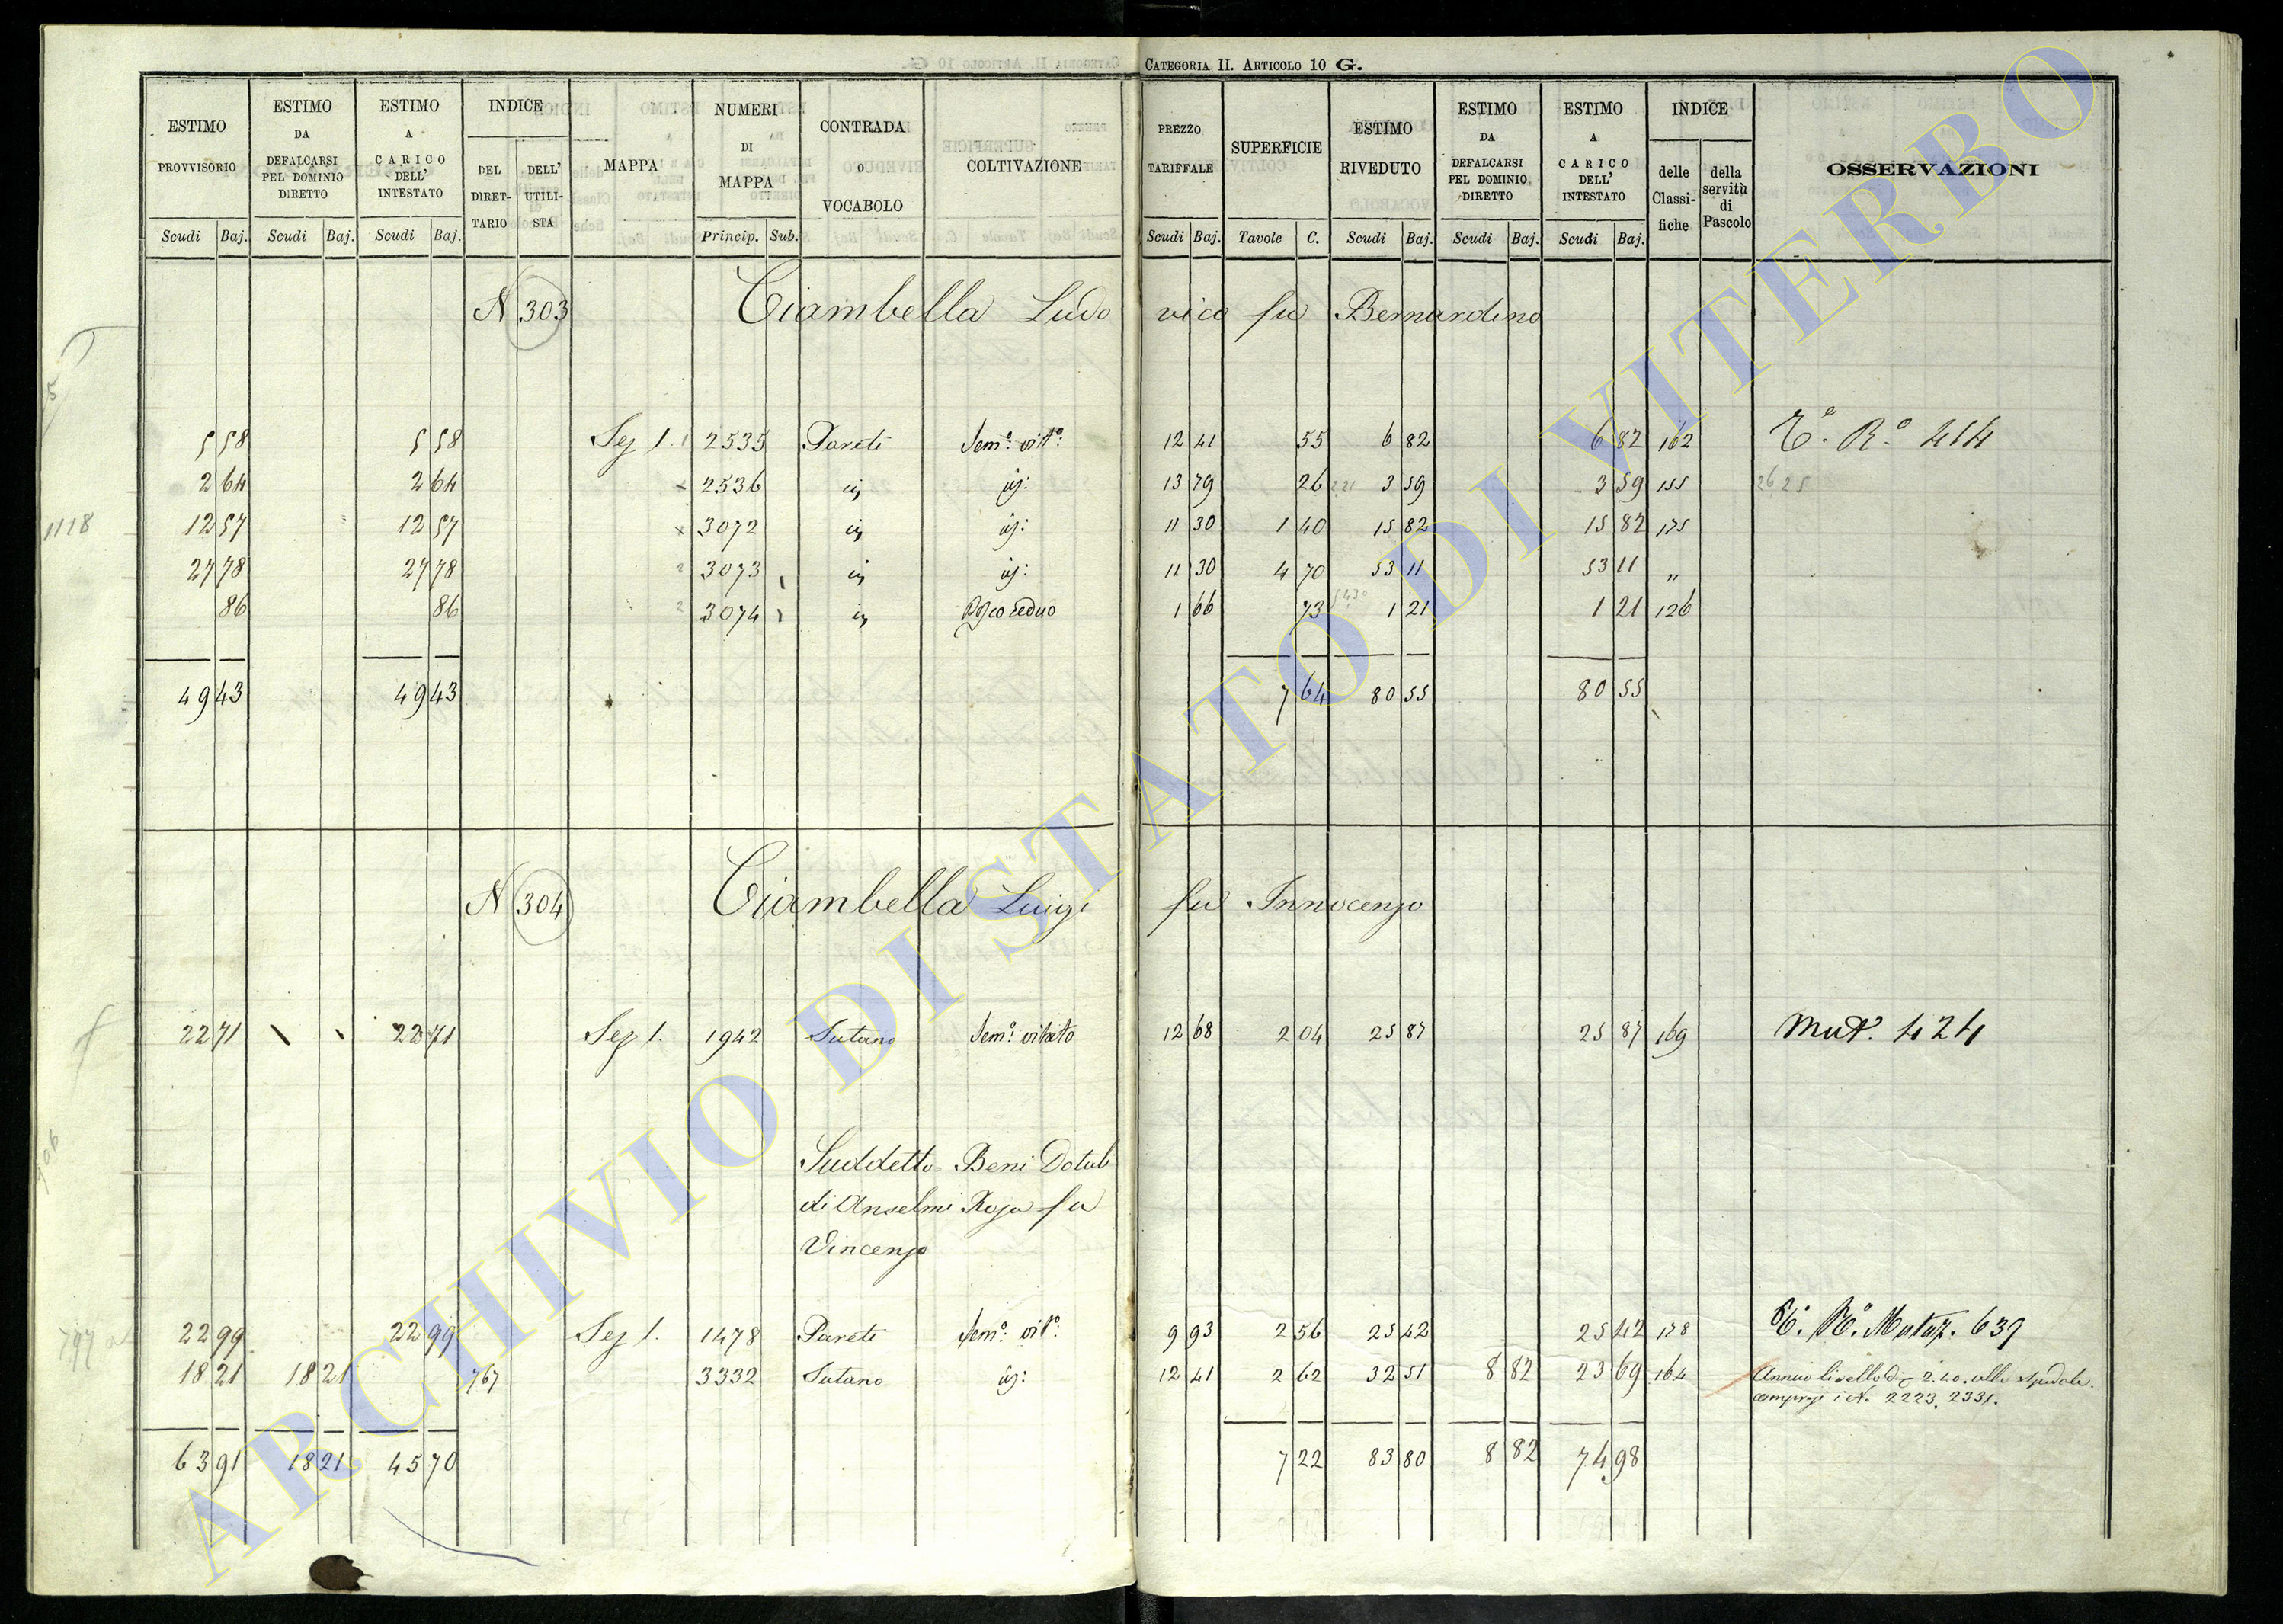 CATEGORIA II. ARTICOLO 10 G.
ESTIMO PROVVISORIO Scudi Baj. ESTIMO DA DEFALCARSI PEL DOMINIO DIRETTO Scudi Baj. ESTIMO A CARICO DELL' INTESTATO Scudi Baj. INDICE DEL DIRET-TARIO DELL' UTILI-STA MAPPA NUMERI DI MAPPA Princip. Sub. CONTRADA O VOCABOLO COLTIVAZIONE PREZZO TARIFFALE Scudi Baj. SUPERFICIE Tavole C. ESTIMO RIVEDUTO Scudi Baj. ESTIMO DA DEFALCARSI PEL DOMINIO DIRETTO Scudi Baj. ESTIMO A CARICO DELL' INTESTATO Scudi Baj. INDICE delle Classi-fiche della servitù di Pascolo OSSERVAZIONI
N 303 Ciambella Ludovico fu Bernardino
5 58 5 58 Sez 1. 2535 Pareti Sem.º vit.º: 12 41 55 6 82 6 82 162 Rº 414
2 64 2 64 2536 13 79 26 3 59 3 59 155 26 25
1118 12 57 12 57 3072 11 30 1 40 15 82 15 82 175
27 78 27 78 3073 11 30 4 70 53 11 53 11 "
86 86 3074 Bosco ceduo 1 66 73 1 21 1 21 126
49 43 49 43 7 64 80 55 80 55
N 304 Ciambella Luigi fu Innocenzo
22 71 22 71 Sez 1. 1942 Sutano Sem.º vitato 12 68 2 04 25 87 25 87 169 Mut. 424
Suddetto= Beni Dotali
di Anselmi Rosa fu
Vincenzo
797 22 99 22 99 Sez 1. 1478 Pareti Sem.º vit.º: 9 93 2 56 25 42 25 42 178 Rº. Mutaz. 639
18 21 18 21 767 3332 Sutano 12 41 2 62 32 51 8 82 23 69 164 Annuo livello di 2.40. allo Spedale.
compresi i N. 2223. 2331.
63 91 18 21 45 70 7 22 83 80 8 82 74 98
ARCHIVIO DI STATO DI VITERBO